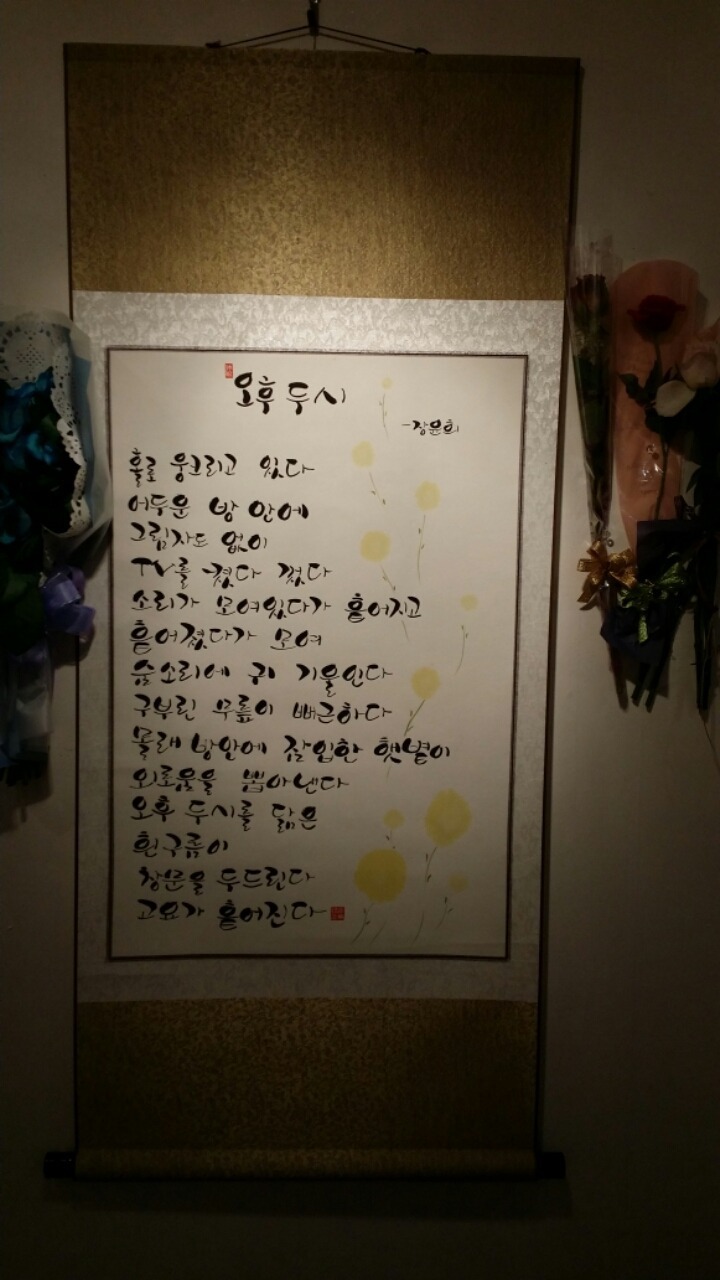 오후 두시
-장윤희
홀로 웅크리고 있다
어두운 방 안에
그림자도 없이
TV를 켰다 껐다
소리가 모여있다가 흩어지고
흩어졌다가 모여
숨소리에 귀 기울인다
구부린 무릎이 뻐근하다
몰래 방안에 잠입한 햇볕이
외로움을 뽑아낸다
오후 두시를 닮은
흰구름이
창문을 두드린다
고요가 흩어진다